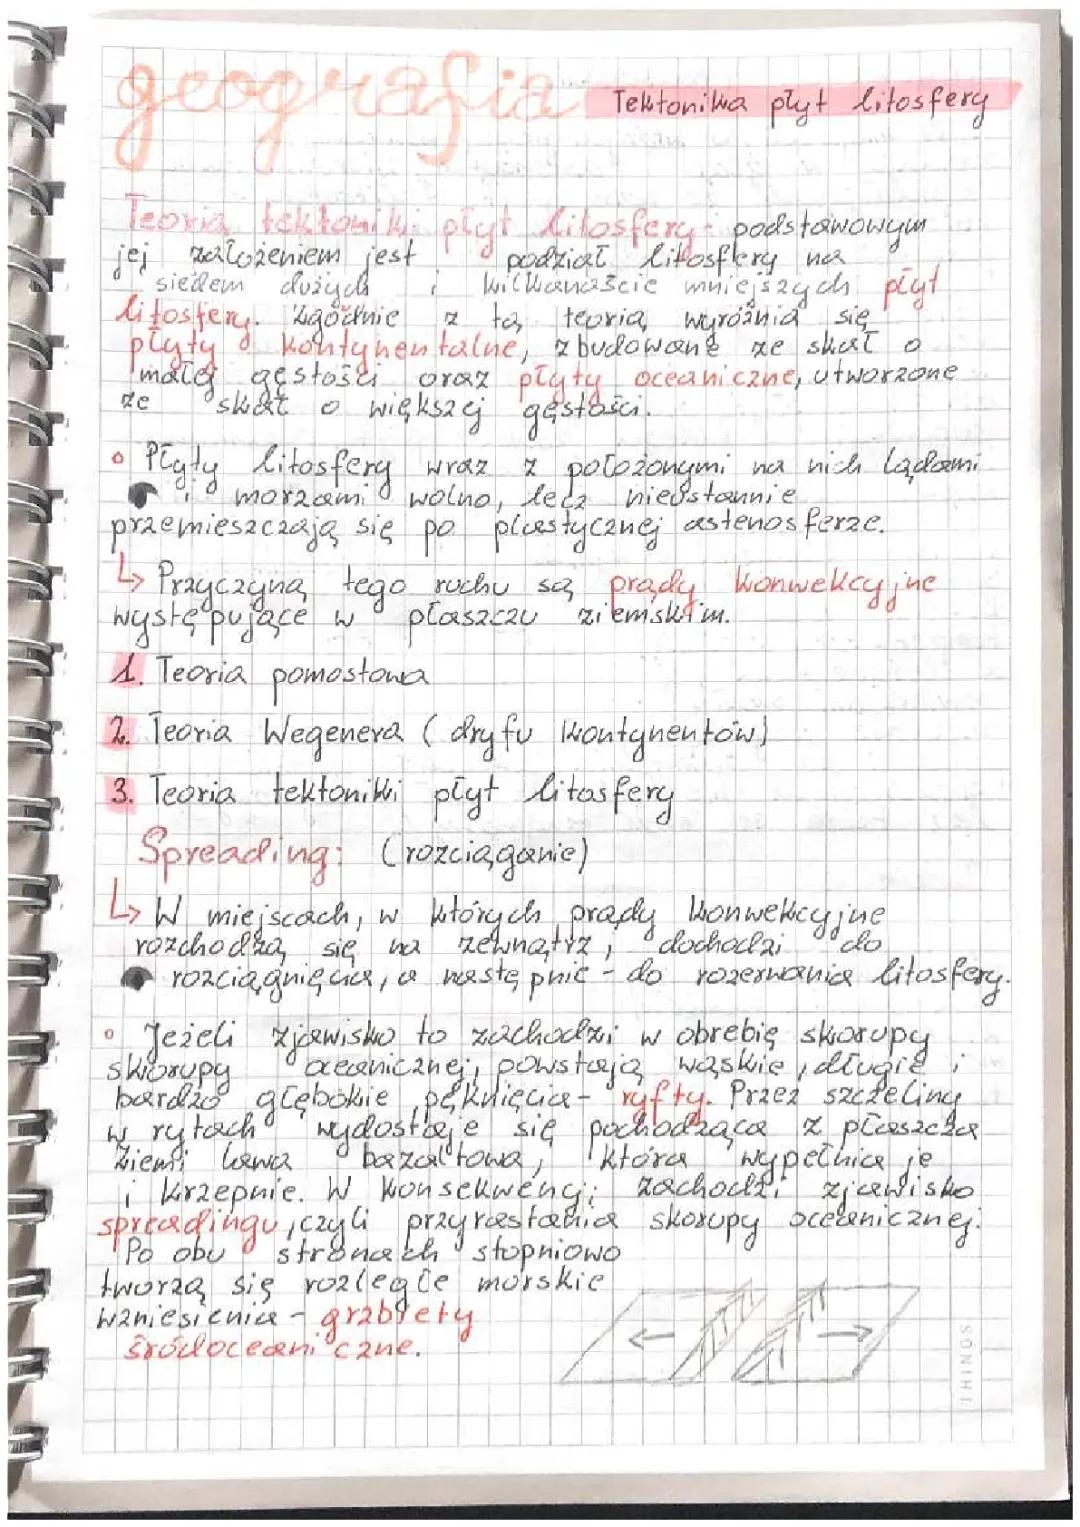 geografia
Tektonika płyt litosfery
Teoria tektoniki płyt litosfery - podstawowym
jej założeniem jest podział litosfery na
siedem dużych i kilkanaście mniejszych płyt
litosfery. Zgodnie z tą teorią wyróżnia się
płyty kontynentalne, zbudowane ze skał o
małej gęstości oraz płyty oceaniczne, utworzone
ze skał o większej gęstości.
° Płyty litosfery wraz z położonymi na nich lądami
i morzami wolno, lecz nieustannie
przemieszczają się po plastycznej astenosferze.
↳ Przyczyną tego ruchu są prądy konwekcyjne
występujące w płaszczu ziemskim.
1. Teoria pomostowa
2. Teoria Wegenera (dryfu kontynentów)
3. Teoria tektoniki płyt litosfery
Spreading: (rozciąganie)
↳ W miejscach, w których prądy konwekcyjne
rozchodzą się na zewnątrz, dochodzi do
rozciągnięcia, a następnie - do rozerwania litosfery.
° Jeżeli zjawisko to zachodzi w obrębię skorupy
skorupy oceanicznej, powstają wąskie, długie i
bardzo głębokie pęknięcia - ryfty. Przez szczeliny
w rytach wydostaje się pochodząca z płaszcza
ziemi lawa bazaltowa, która wypełnia je
i krzepnie. W konsekwencji zachodzi zjawisko
spreadingu, czyli przyrastania skorupy oceanicznej.
Po obu stronach stopniowo
tworzą się rozległe morskie
wzniesienia - grzbiety
śródoceaniczne.
THINGS